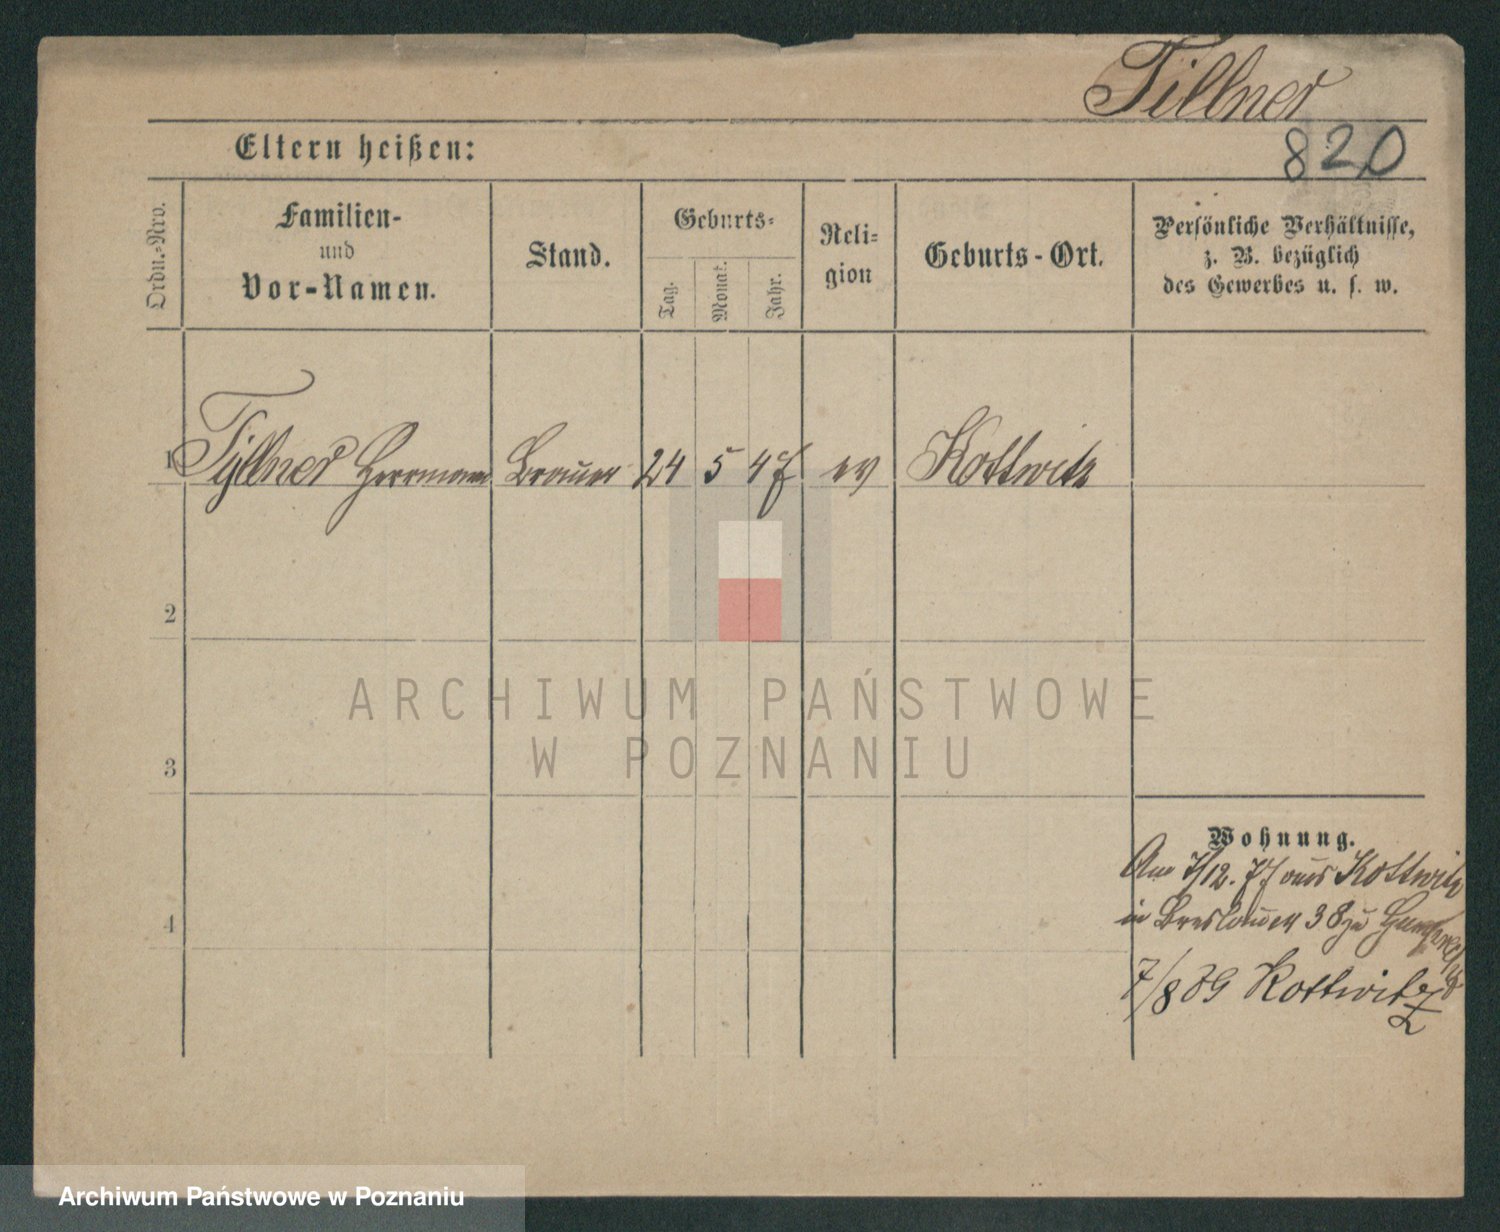 Tillner
820
Eltern heißen:
Ordn.-Nro.
Familien-
und
Vor-Namen.
Stand.
Geburts-
Tag.
Monat.
Jahr.
Reli-
gion
Geburts-Ort.
Persönliche Verhältnisse,
z. B. bezüglich
des Gewerbes u. s. w.
1 Tyllner Herrmann Brauer 24 5 47 ev Kottwitz
2
3
4
Wohnung.
Am 7/12. 77 aus Kottwitz
in Breslauer 38 zu
7/8 89 Kottwitz
ARCHIWUM PAŃSTWOWE
W POZNANIU
Archiwum Państwowe w Poznaniu